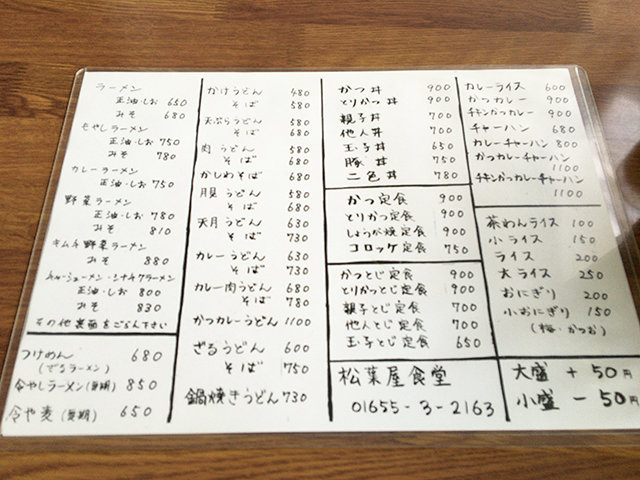 ラーメン
正油・しお 650
みそ 680
もやしラーメン
正油・しお 750
みそ 780
カレーラーメン
正油・しお 750
野菜ラーメン
正油・しお 780
みそ 810
キムチ野菜ラーメン
チャーシューメン・ミナギクラーメン
正油・しお 800
みそ 830
その他裏面をごらん下さい
つけめん 680
(でるラーメン)
冷やしラーメン(夏期) 850
冷や麦(夏期) 650
かけうどん 480
そば 580
天ぷらうどん 580
そば 680
肉うどん 580
そば 680
かしわそば 680
月見うどん 580
そば 680
天月うどん 630
そば 730
カレーうどん 630
そば 730
カレー肉うどん 680
そば 780
かつカレーうどん 1100
ざるうどん 600
そば 750
鍋焼きうどん 730
かつ丼 900
とりかつ丼 900
親子丼 700
他人丼 700
玉子丼 650
豚丼 750
二色丼 780
かつ定食 900
とりかつ定食 900
しょうが焼定食 900
コロッケ定食 750
かつとじ定食 900
とりかつとじ定食 900
親子とじ定食 700
他人とじ定食 700
玉子とじ定食 650
松葉屋食堂
01655-3-2163
カレーライス 600
かつカレー 900
チキンかつカレー 900
チャーハン 680
カレーチャーハン 800
かつカレーチャーハン
1100
チキンかつカレーチャーハン
1100
茶わんライス 100
小ライス 150
ライス 200
大ライス 250
おにぎり 200
小おにぎり 150
(梅・かつお)
大盛 + 50円
小盛 - 50円